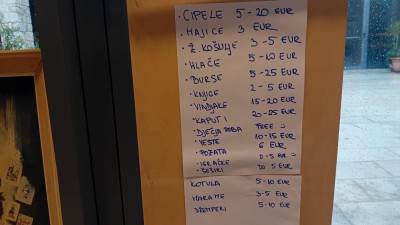 · CIPELE 5-20 EUR
· MAJICE 3 EUR
· Ž. KOŠULJE 3-5 EUR
· HLAČE 5-10 EUR
· BURSE 5-25 EUR
· KNJIGE 2-5 EUR
· VINDJAKE 15-20 EUR
· KAPUTI 20-25 EUR
· DJEČJA ROBA FREE
· VESTE 10-15 EUR
· POZATA 6 EUR
· IGRAČKE 0-5
· ŠEŠIRI 5 EUR
KOTULA 5-10 EUR
3-5 EUR
DŽEMPERI 5-10 EUR